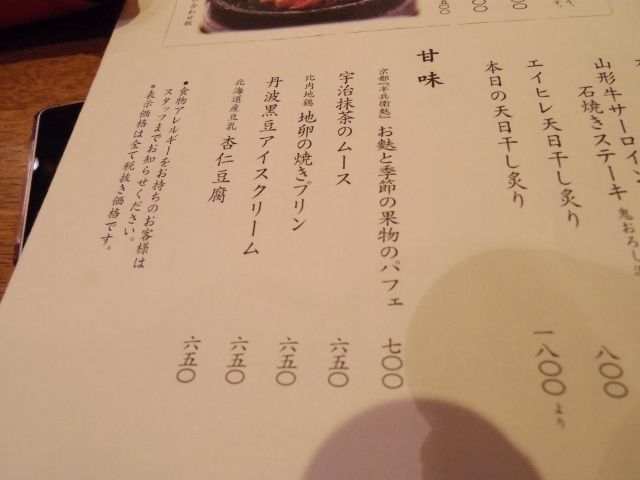 山形牛サーロイン
石焼きステーキ 鬼おろし
エイヒレ天日干し炙り 八〇〇
本日の天日干し炙り 一八〇〇より
甘味
京都『半兵衛麩』 お麩と季節の果物のパフェ 七〇〇
宇治抹茶のムース 六五〇
比内地鶏 地卵の焼きプリン 六五〇
丹波黒豆アイスクリーム 六五〇
北海道産豆乳 杏仁豆腐 六五〇
●食物アレルギーをお持ちのお客様は
スタッフまでお知らせください。
●表示価格は全て税抜き価格です。